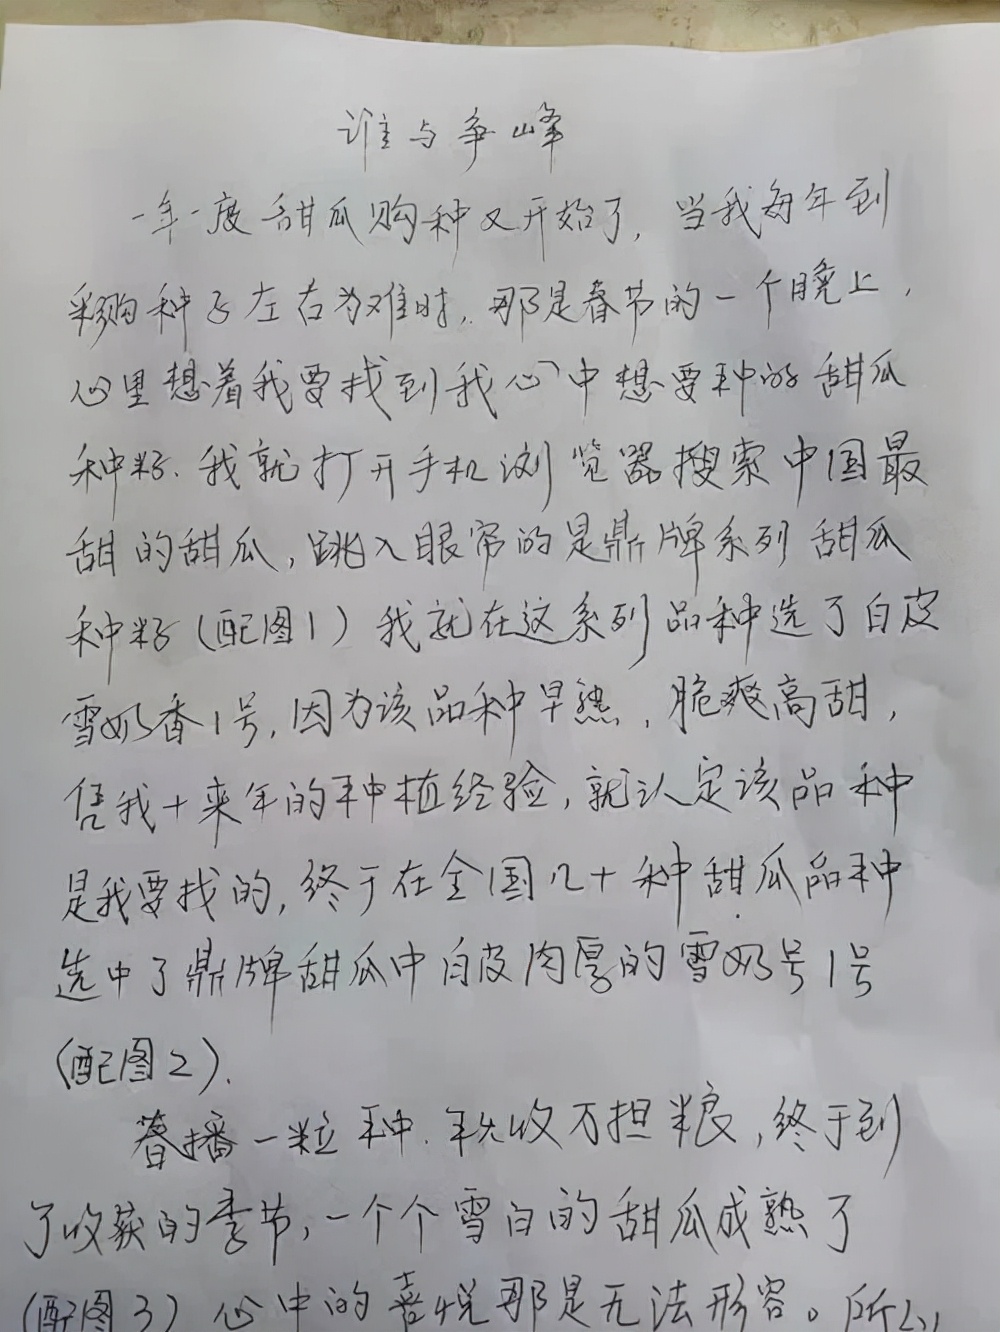 谁与争峰
一年一度甜瓜购种又开始了，当我每年到
采购种子左右为难时，那是春节的一个晚上，
心里想着我要找到我心中想要种的甜瓜
种籽，我就打开手机浏览器搜索中国最
甜的甜瓜，跳入眼帘的是鼎牌系列甜瓜
种籽（配图1）我就在这系列品种选了白皮
雪奶香1号，因为该品种早熟，脆爽高甜，
凭我十来年的种植经验，就认定该品种
是我要找的，终于在全国几十种甜瓜品种
选中了鼎牌甜瓜中白皮肉厚的雪奶号1号
（配图2）.
春播一粒种，秋收万担粮，终于到
了收获的季节，一个个雪白的甜瓜成熟了
（配图3）心中的喜悦那是无法形容。所以